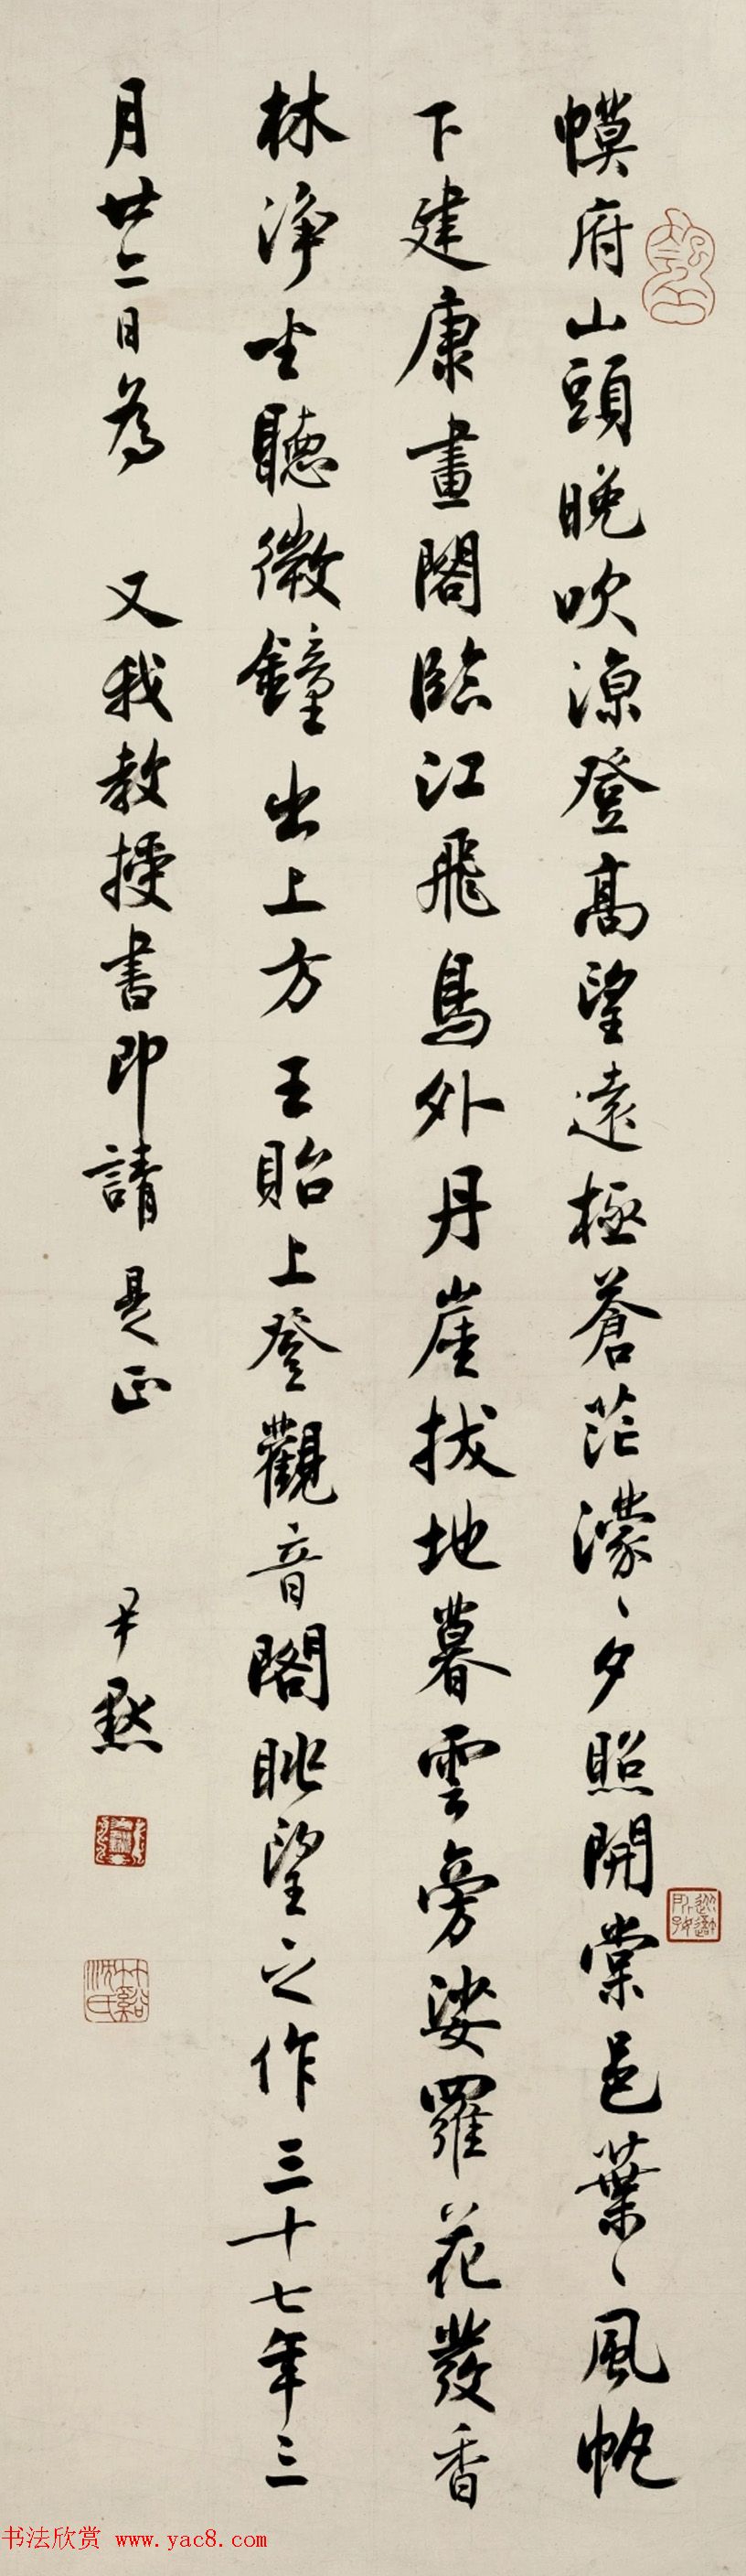 幙府山頭晚吹涼登高望遠極蒼茫濛〻夕照開棠邑葉〻風帆
下建康畫閣臨江飛鳥外丹崖拔地暮雲旁娑羅花發香
林淨坐聽微鐘出上方王貽上登觀音閣眺望之作三十七年三
月廿二日為 又我教授書即請 是正 尹默
竹谿沈氏
书法欣赏 www.yac8.com